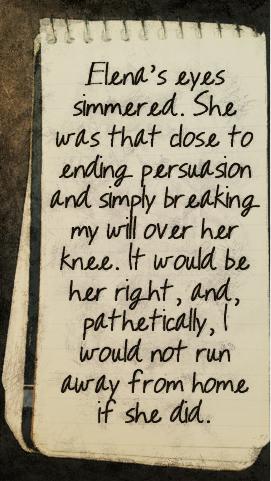 Elena's eyes
simmered. She
was that close to
ending persuasion
and simply breaking
my will over her
knee. It would be
her right, and,
pathetically, I
would not run
away from home
if she did.